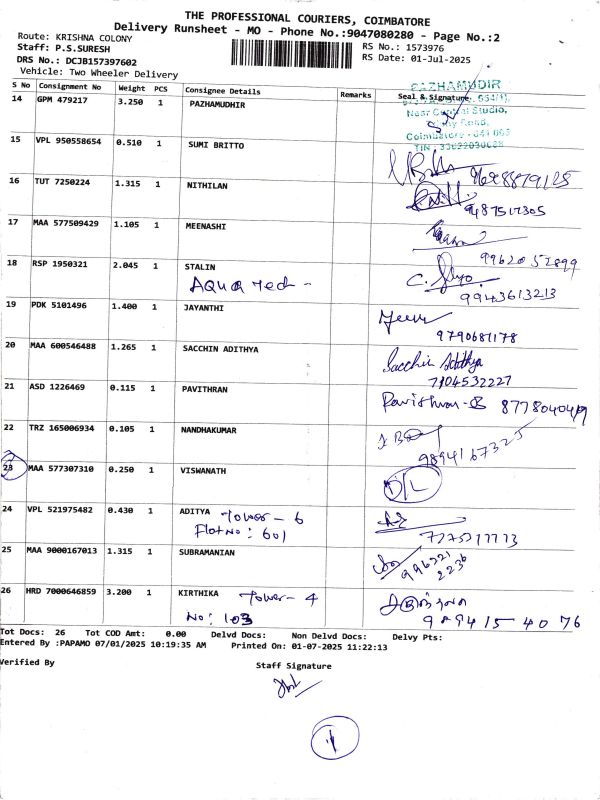 THE PROFESSIONAL COURIERS, COIMBATORE
Delivery Runsheet - MO - Phone No.:9047080280 - Page No.:2
Route: KRISHNA COLONY
Staff: P.S.SURESH
RS No.: 1573976
DRS No.: DCJB157397602
RS Date: 01-Jul-2025
Vehicle: Two Wheeler Delivery
S No Consignment No Weight PCS Consignee Details Remarks Seal & Signature
14 GPM 479217 3.250 1 PAZHAMUDHIR
PAZHAMUDIR
Near Central Studio,
Coimbatore - 641 005
15 VPL 950558654 0.510 1 SUMI BRITTO
16 TUT 7250224 1.315 1 NITHILAN
9487517305
17 MAA 577509429 1.105 1 MEENASHI
9962052899
18 RSP 1950321 2.045 1 STALIN
AQUA Tech -
9943613213
19 PDK 5101496 1.400 1 JAYANTHI
9790681178
20 MAA 600546488 1.265 1 SACCHIN ADITHYA
Sacchin Adithya
7104532227
21 ASD 1226469 0.115 1 PAVITHRAN
Pavithran
22 TRZ 165006934 0.105 1 NANDHAKUMAR
9894167325
23 MAA 577307310 0.250 1 VISWANATH D/L
24 VPL 521975482 0.430 1 ADITYA Tower - 6
Flat No: 601
25 MAA 9000167013 1.315 1 SUBRAMANIAN
996321
2236
26 HRD 7000646859 3.200 1 KIRTHIKA Tower - 4
No: 103
9894154076
Tot Docs: 26 Tot COD Amt: 0.00 Delvd Docs: Non Delvd Docs: Delvy Pts:
Entered By :PAPAMO 07/01/2025 10:19:35 AM Printed On: 01-07-2025 11:22:13
Verified By
Staff Signature
1